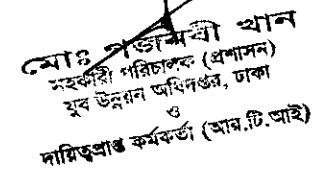 মোঃ খান
সহকারী পরিচালক (প্রশাসন)
যুব উন্নয়ন অধিদপ্তর, ঢাকা
ও
দায়িত্বপ্রাপ্ত কর্মকর্তা (আর.টি.আই)